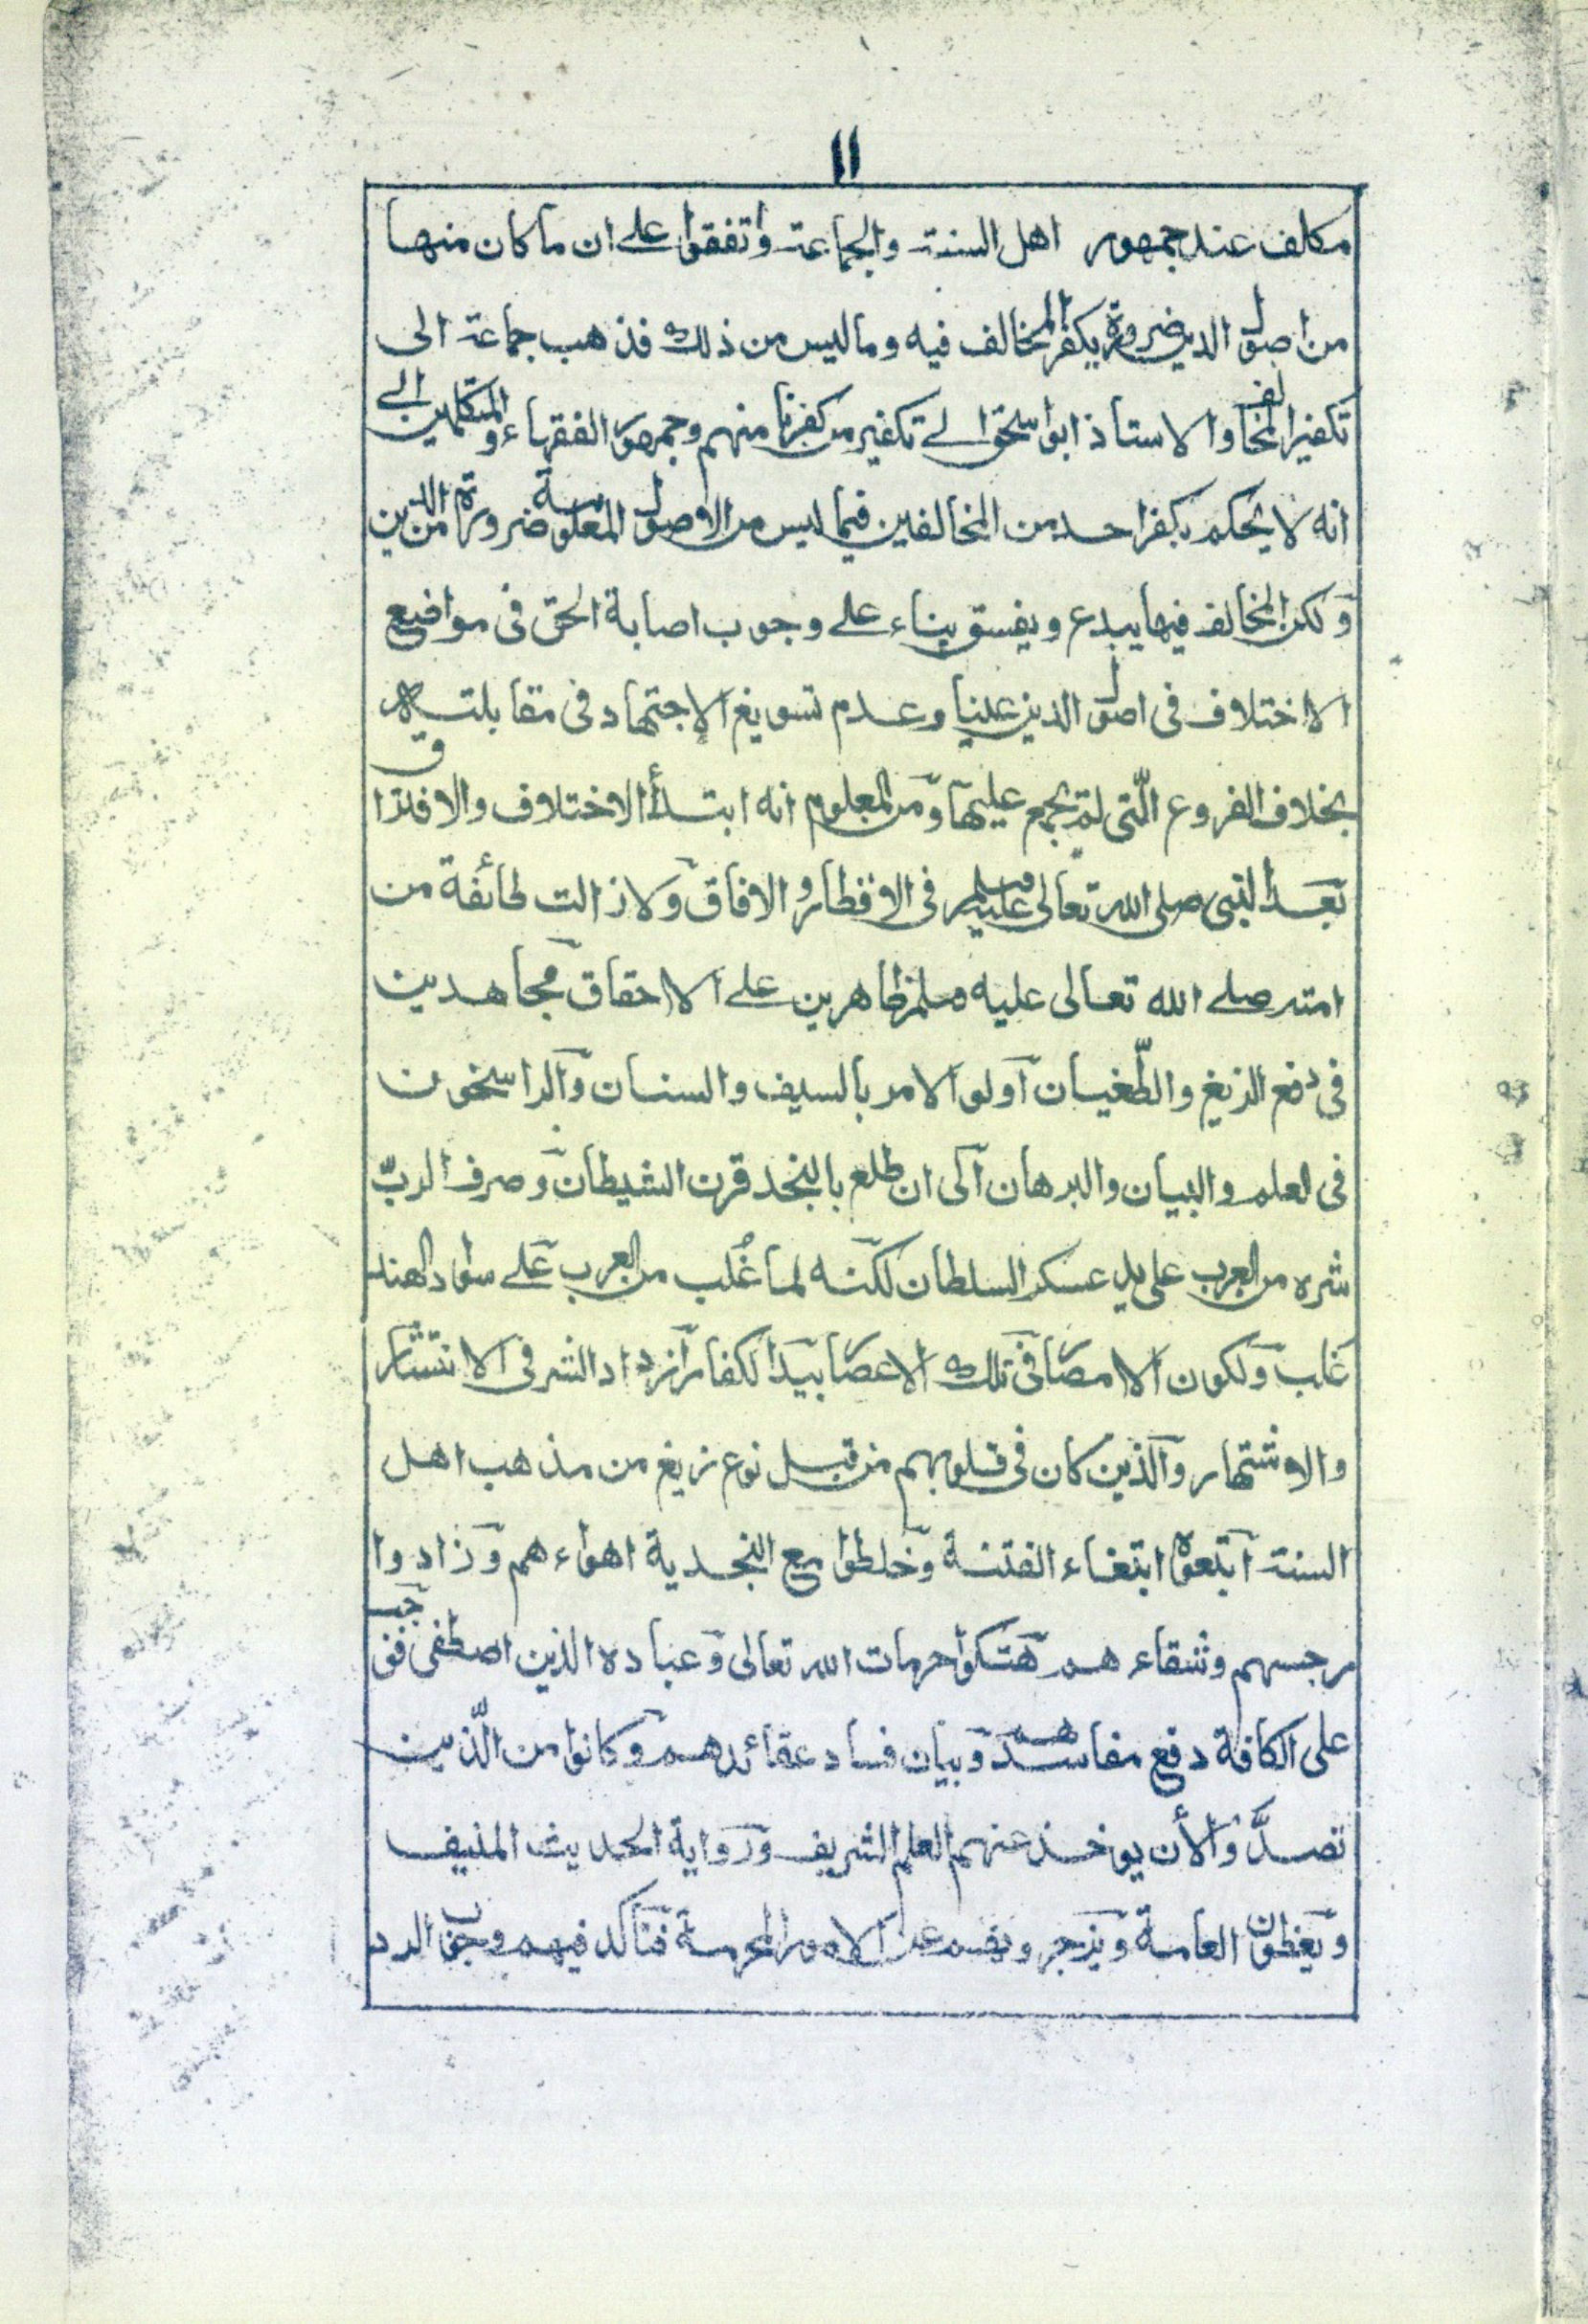 ١١
مكلف عند جمهور اهل السنة والجماعة واتفقوا على ان ما كان منها
من اصول الدين ضرورة يكفر المخالف فيه وما ليس من ذلك فذهب جماعة الى
تكفير المخالف والاستاذ ابو اسحٰق الى تكفير من كفرنا منهم وجمهور الفقهاء والمتكلمين الى
انه لا يحكم بكفر احد من المخالفين فيما ليس من الاصول المعلومة ضرورة من الدين
ولكن المخالف فيها يبدع ويفسق بناء على وجوب اصابة الحق فى مواضع
الاختلاف فى اصول الدين عينا وعدم تسويغ الاجتهاد فى مقابلته
بخلاف الفروع الّتى لم يجمع عليها ومن المعلوم انه ابتدأ الاختلاف والافتراق
بعد النبى صلى الله تعالى عليه وسلم فى الاقطار والافاق ولا زالت طائفة من
امته صلى الله تعالى عليه وسلم ظاهرين على الاحقاق مجاهدين
فى دفع الزيغ والطّغيان اولو الامر بالسيف والسنان والراسخون
فى لعلم والبيان والبرهان الى ان طلع بالنجد قرن الشيطان وصرف الربّ
شره من العرب على يد عسكر السلطان لكنه لما غُلب من العرب على سواد الهند
غلب ولكون الامصار فى تلك الاعصار بيد الكفار ازداد الشر فى الانتشار
والاشتهار والذين كان فى قلوبهم من قبل نوع زيغ من مذهب اهل
السنة ابتعوه ابتغاء الفتنة وخلطوا مع النجدية اهواءهم وزادوا
رجسهم وشقاءهم هتكوا حرمات الله تعالى وعباده الذين اصطفى فوجب
على الكافة دفع مفاسدهم وبيان فساد عقائدهم وكانوا من الّذين
تصدَّوا لأن يوخذ عنهم العلم الشريف ورواية الحديث المنيف
ويعظون العامة ويزجرونهم عن الامور المحرمة فتأكد فيهم وجوب الرد